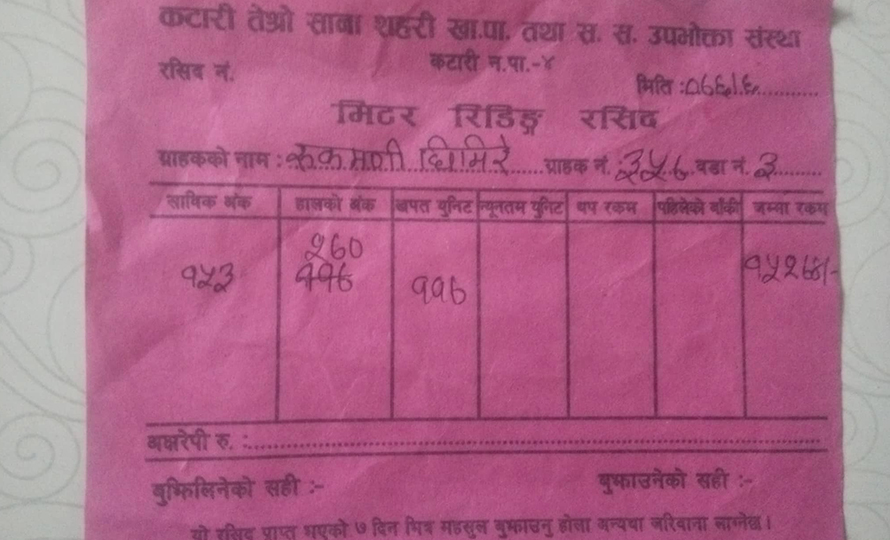 कटारी तेश्रो साना शहरी खा.पा. तथा स. स. उपभोक्ता संस्था
कटारी न.पा.-४
रसिद नं.
मिति :
मिटर रिडिङ्ग रसिद
ग्राहकको नाम : रुकमणी घिमिरे ग्राहक नं. ३५७ वडा नं. ३
साविक अंक हालको अंक खपत युनिट न्यूनतम युनिट थप रकम पहिलेको बाँकी जम्मा रकम
२७०
१५३ ११७ ११७
अक्षरेपी रु. :
बुझिलिनेको सही :- बुझाउनेको सही :-
यो रसिद प्राप्त भएको ७ दिन भित्र महसुल बुझाउनु होला अन्यथा जरिवाना लाग्नेछ।